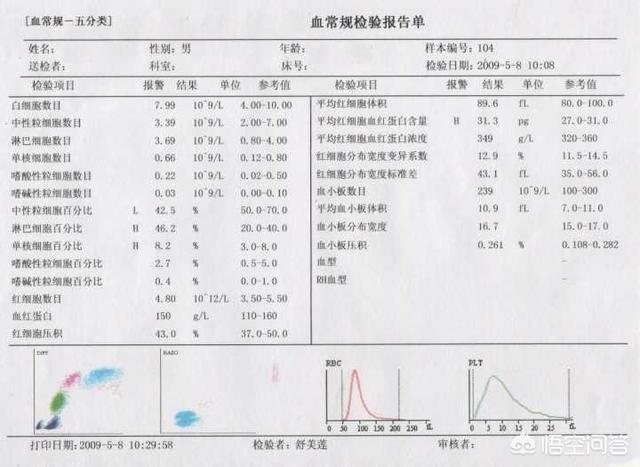 [血常规-五分类]
血常规检验报告单
姓名: 性别: 男 年龄: 样本编号: 104
送检者: 科室: 床号: 检验日期: 2009-5-8 10:08
检验项目 报警 结果 单位 参考值 检验项目 报警 结果 单位 参考值
白细胞数目 7.99 10^9/L 4.00-10.00 平均红细胞体积 89.6 fL 80.0-100.0
中性粒细胞数目 3.39 10^9/L 2.00-7.00 平均红细胞血红蛋白含量 H 31.3 pg 27.0-31.0
淋巴细胞数目 3.69 10^9/L 0.80-4.00 平均红细胞血红蛋白浓度 349 g/L 320-360
单核细胞数目 0.66 10^9/L 0.12-0.80 红细胞分布宽度变异系数 12.9 % 11.5-14.5
嗜酸性粒细胞数目 0.22 10^9/L 0.02-0.50 红细胞分布宽度标准差 43.1 fL 35.0-56.0
嗜碱性粒细胞数目 0.03 10^9/L 0.00-0.10 血小板数目 239 10^9/L 100-300
中性粒细胞百分比 L 42.5 % 50.0-70.0 平均血小板体积 10.9 fL 7.0-11.0
淋巴细胞百分比 H 46.2 % 20.0-40.0 血小板分布宽度 16.7 15.0-17.0
单核细胞百分比 H 8.2 % 3.0-8.0 血小板压积 0.261 % 0.108-0.282
嗜酸性粒细胞百分比 2.7 % 0.5-5.0 血型 -
嗜碱性粒细胞百分比 0.4 % 0.0-1.0 RH血型 -
红细胞数目 4.80 10^12/L 3.50-5.50
血红蛋白 150 g/L 110-160
红细胞压积 43.0 % 37.0-50.0
DIFF BASO RBC PLT
0 50 100 150 200 250 fL 0 5 10 15 20 25 fL
打印日期: 2009-5-8 10:29:58 检验者: 舒美莲 审核者:
悟空问答